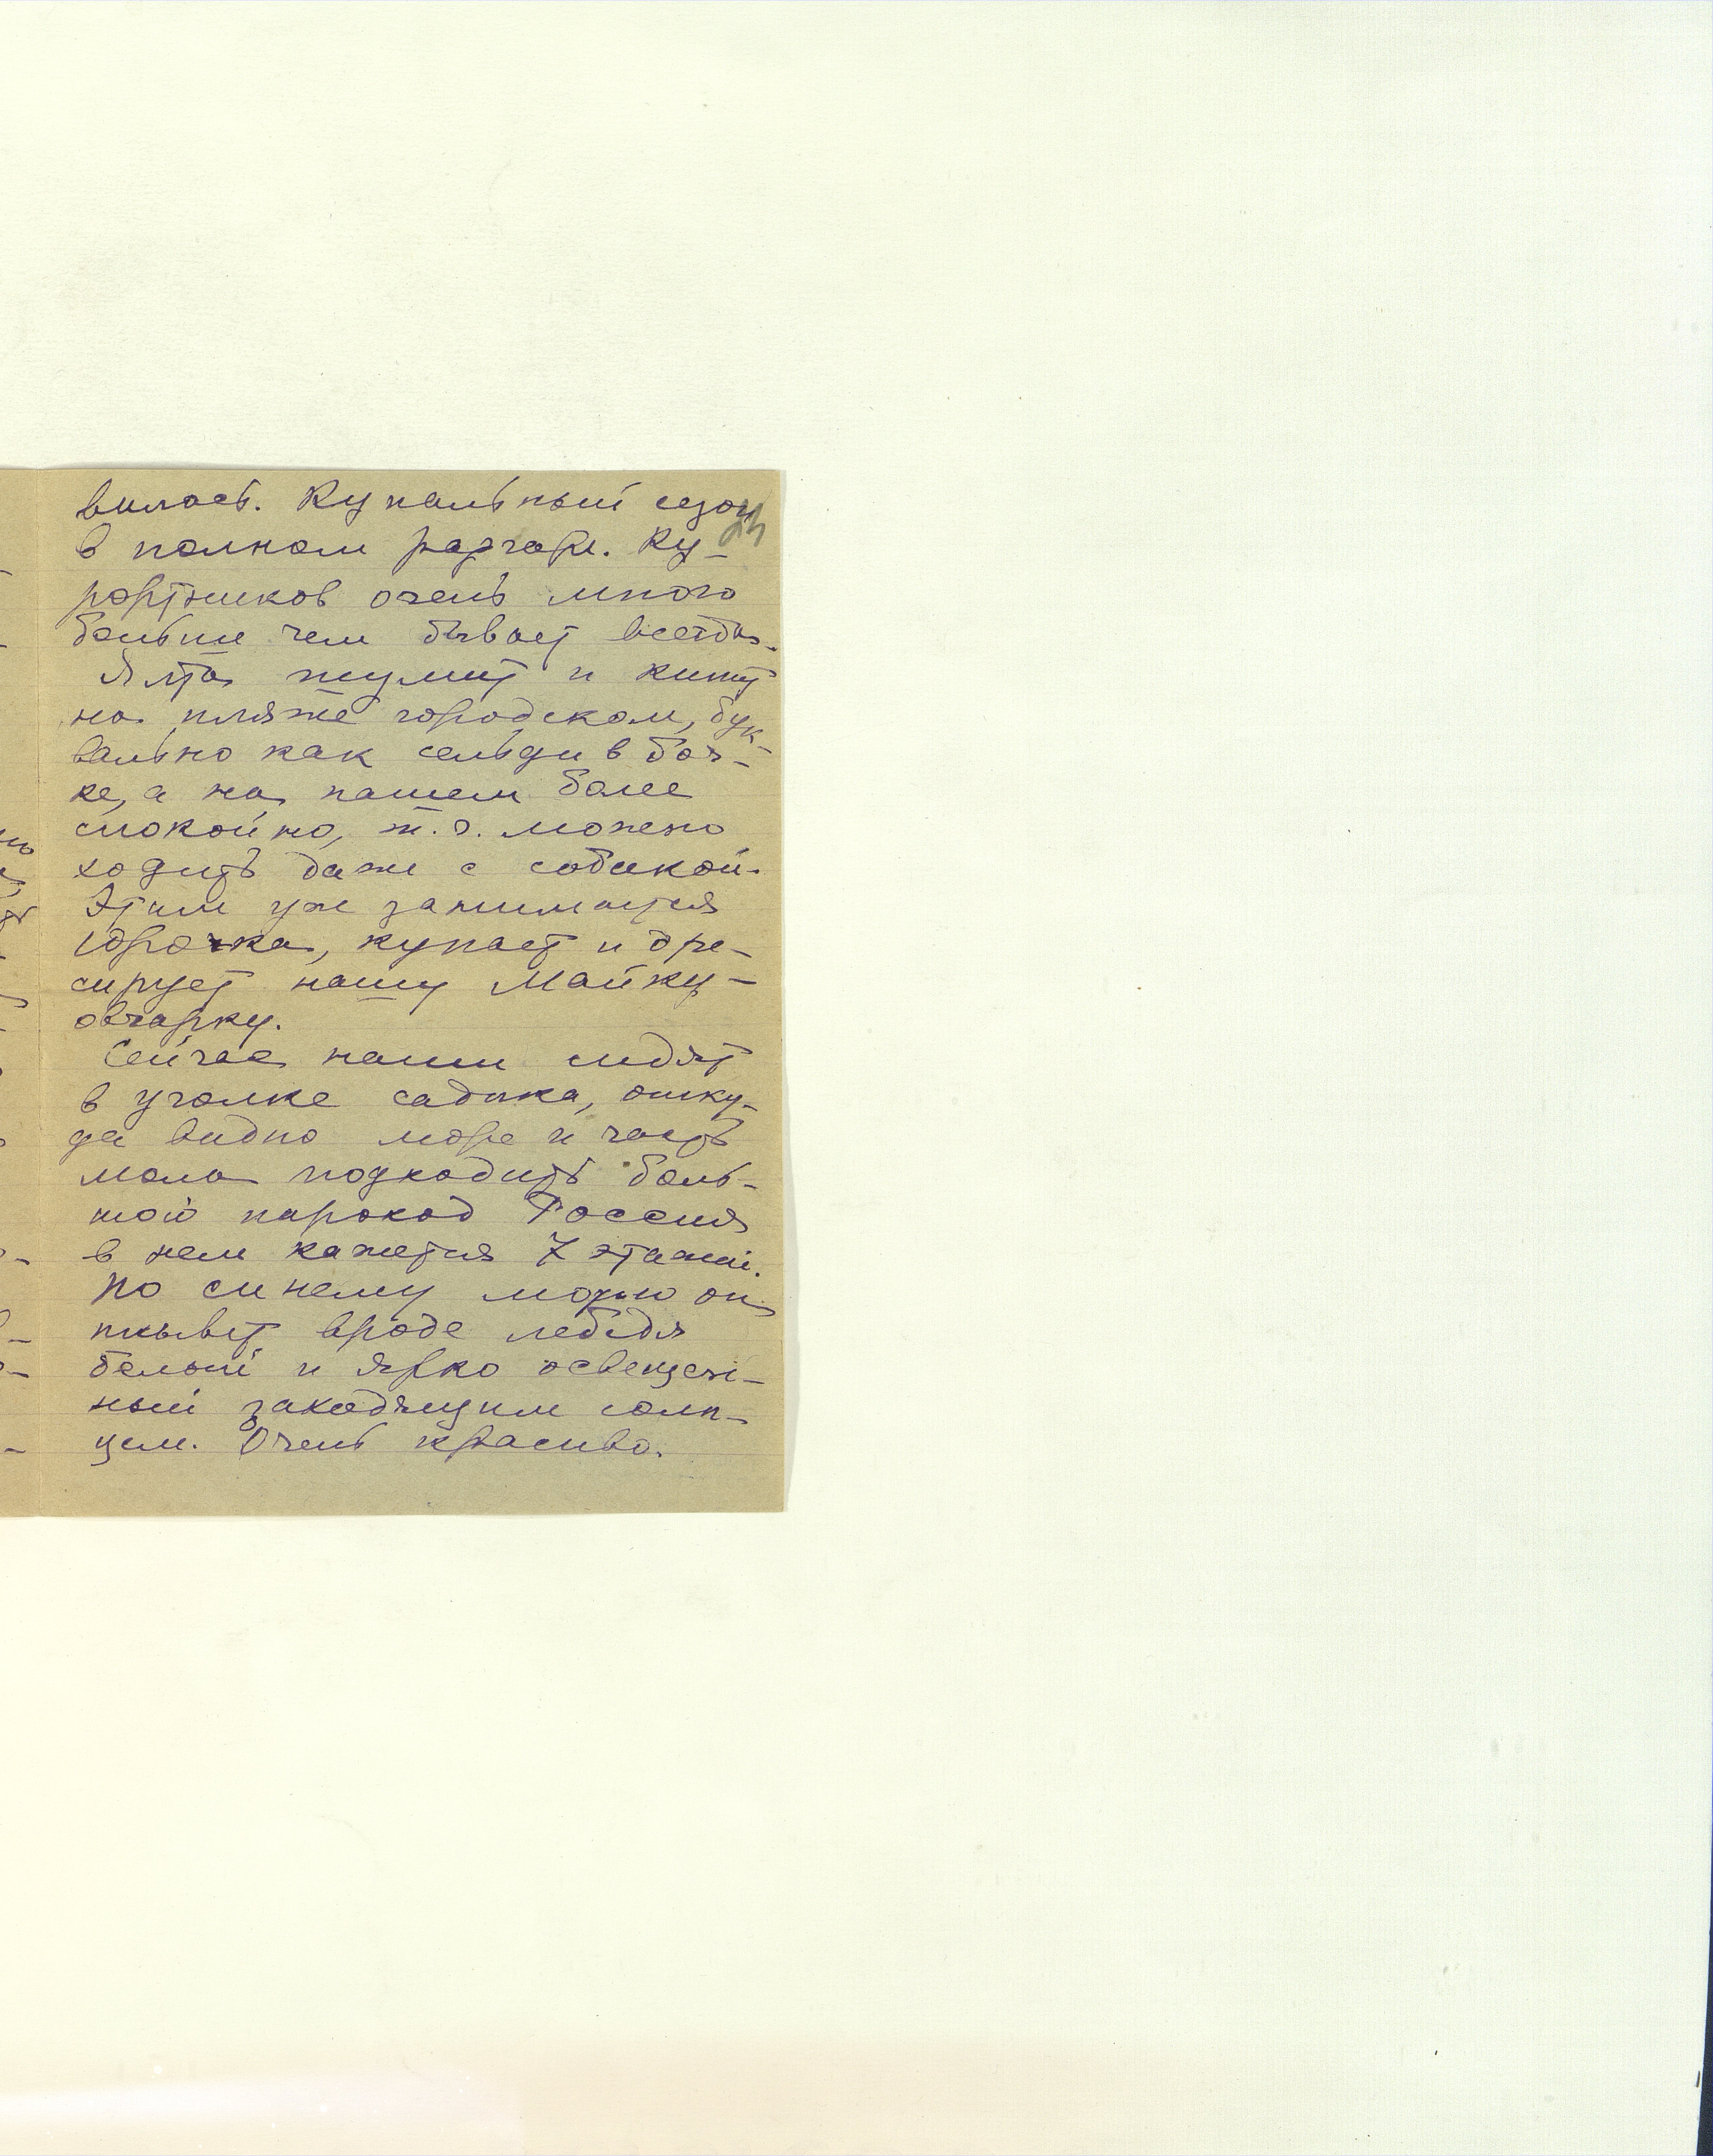 вилась. Купальный сезон
23
в полном разгаре. Ку-
рортников очень много
больше чем бывает всегда.
Ялта шумит и кипит
на пляже городском, бук-
вально как сельди в боч-
ке, а на нашем более
спокойно, т.ч. можно
ходить даже с собакой.
Этим уже занимается
Юрочка, купает и дре-
сирует нашу Майку-
овчарку.
Сейчас наши сидят
в уголке садика, отку-
да видно море и часть
мола подходить боль-
шой пароход Россия
в нем кажется 7 этажей.
По синему морю он
плывет вроде лебедя
белый и ярко освещен-
ный заходящим солн-
цем. Очень красиво.